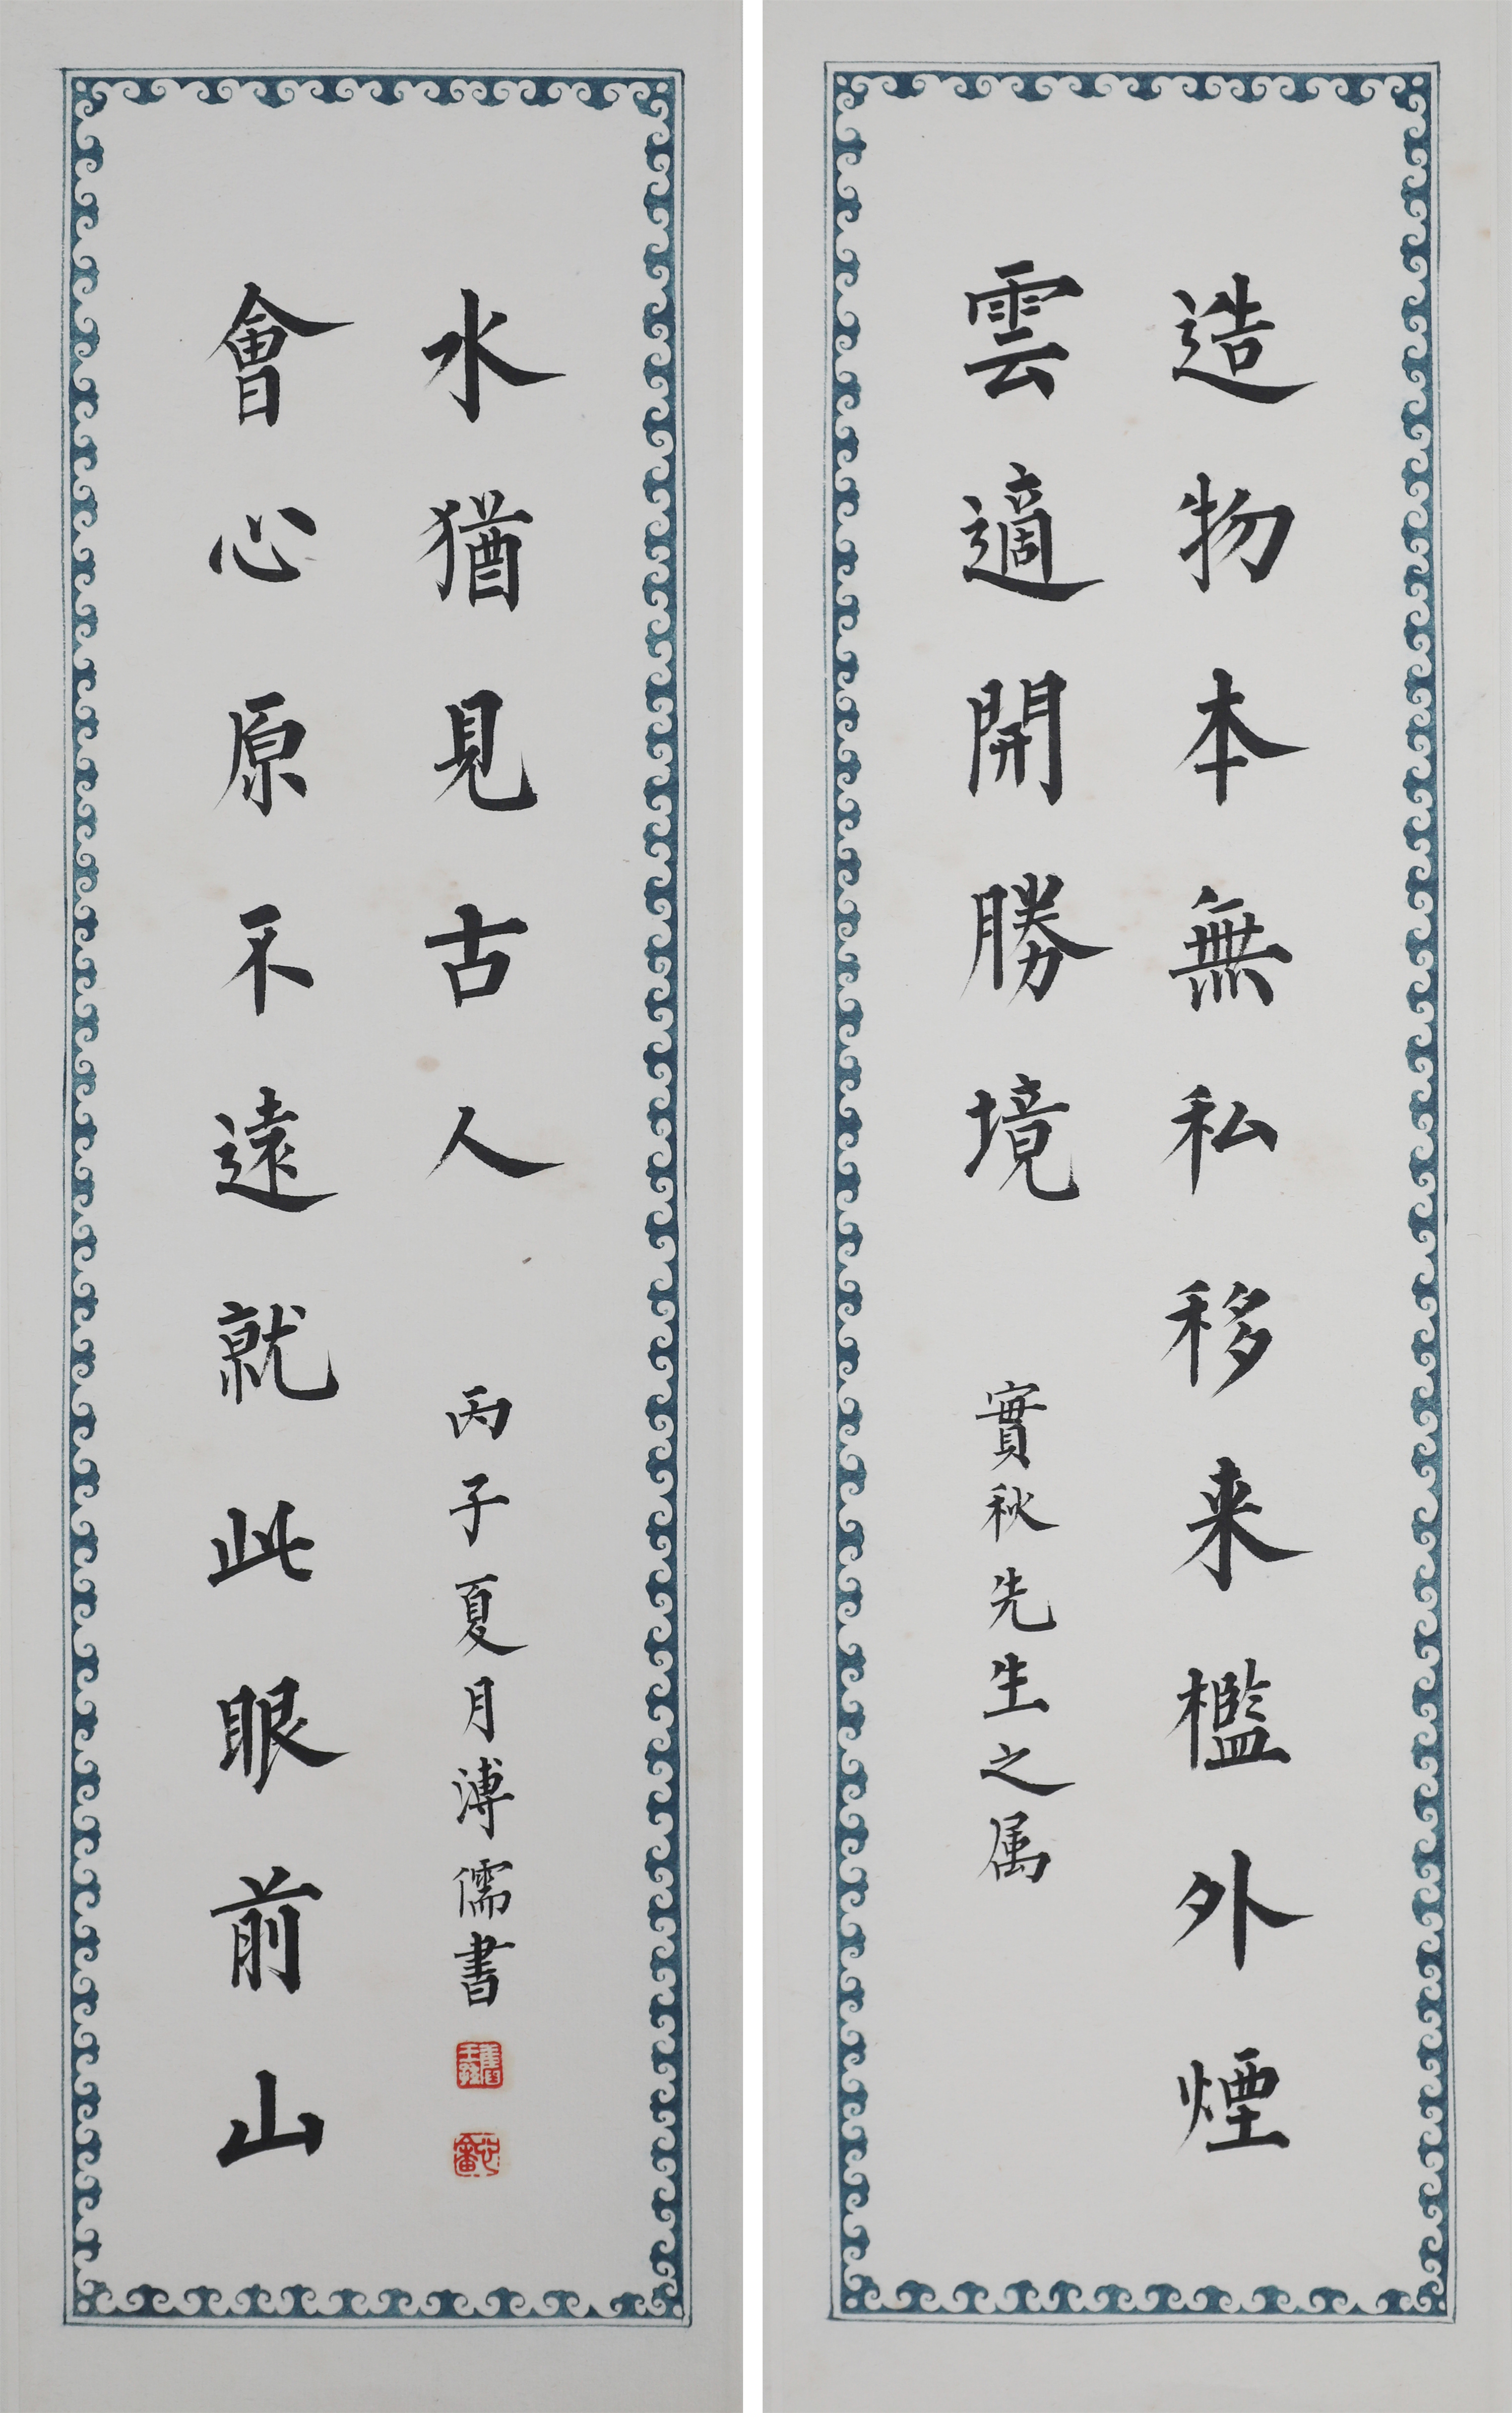 造物本無私移来檻外煙
雲適開勝境
實秋先生之属
會心原不遠就此眼前山
水猶見古人
丙子夏月溥儒書
舊王孫
心畬